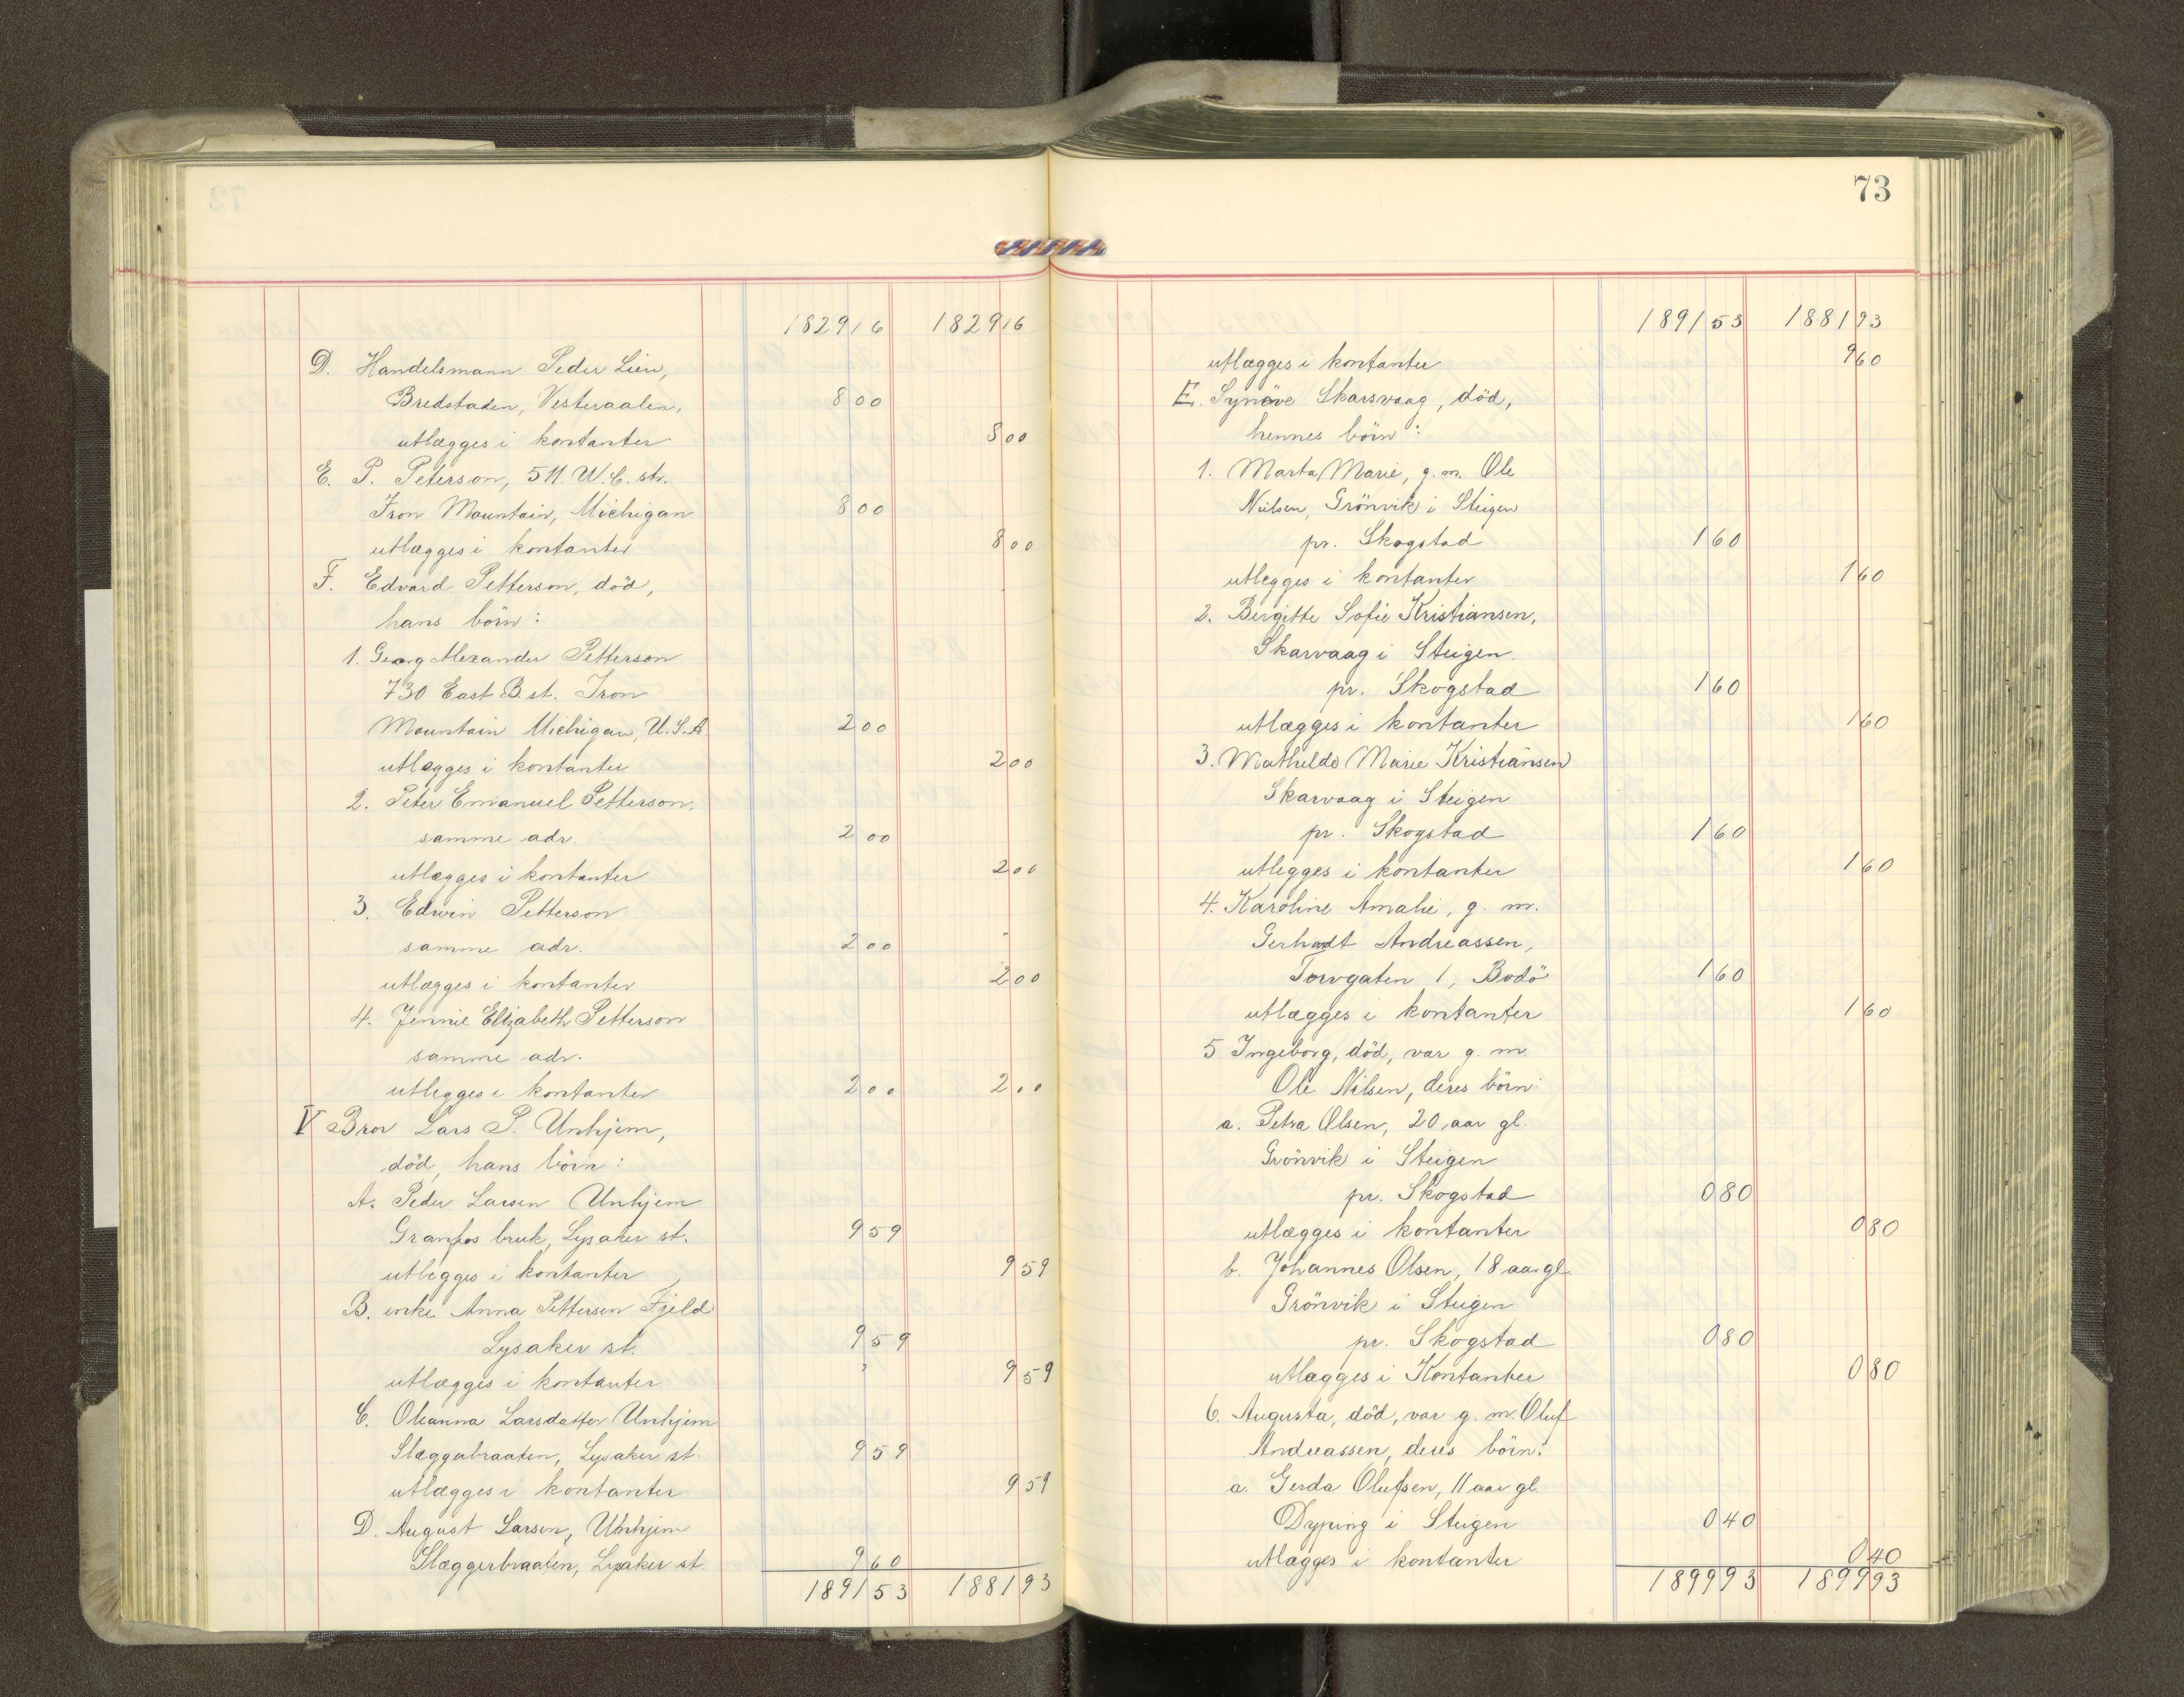 1829 16 1829 16
D. Handelsmann Peder Lien,
Bredstaden, Vesteraalen, 8 00
utlægges i kontanter 8 00
E. P. Peterson, 511. W. C. str.
Iron Mountain, Michigan 8 00
utlægges i kontanter 8 00
F. Edvard Petterson, död,
hans börn:
1. Georg Alexander Petterson
730 East B. st. Iron
Mountain Michigan, U.S.A. 2 00
utlægges i kontanter 2 00
2. Peter Emanuel Petterson,
samme adr. 2 00
utlægges i kontanter 2 00
3. Edwin Petterson
samme adr. 2 00
utlægges i kontanter 2 00
4. Jennie Elizabeth Petterson
samme adr.
utlægges i kontanter 2 00 2 00
V Bror Lars P. Unhjem,
död, hans börn:
A. Peder Larsen Unhjem
Granfos bruk, Lysaker st. 9 59
utlægges i kontanter 9 59
B. enke Anna Pettersen Fjeld
Lysaker st. 9 59
utlægges i kontanter 9 59
C. Oleanna Larsdatter Unhjem
Slæggerbraaten, Lysaker st. 9 59
utlægges i kontanter 9 59
D. August Larsen, Unhjem
Slæggerbraaten, Lysaker st. 9 60
1891 53 1881 93
73
1891 53 1881 93
utlægges i kontanter 9 60
E. Synöve Skarsvaag, död,
hennes börn:
1. Marta Marie, g. m. Ole
Nilsen, Grönvik i Steigen
pr. Skogstad 1 60
utlægges i kontanter 1 60
2. Bergitte Sofie Kristiansen,
Skarvaag i Steigen.
pr. Skogstad 1 60
utlægges i kontanter 1 60
3. Mathilde Marie Kristiansen
Skarvaag i Steigen
pr. Skogstad 1 60
utlægges i kontanter 1 60
4. Karoline Amalie, g. m.
Gerhardt Andreassen,
Torvgaten 1, Bodö 1 60
utlægges i kontanter 1 60
5 Ingeborg, död, var g. m.
Ole Nilsen, deres börn:
a. Petra Olsen, 20 aar gl.
Grönvik i Steigen
pr. Skogstad 0 80
utlægges i kontanter 0 80
b. Johannes Olsen, 18 aar gl.
Grönvik i Steigen
pr. Skogstad 0 80
utlægges i Kontanter 0 80
6. Augusta, död, var g. m. Oluf
Andreassen, deres börn:
a. Gerda Olufsen, 11 aar gl.
Dyping i Steigen 0 40
utlægges i kontanter 0 40
1899 93 1899 93